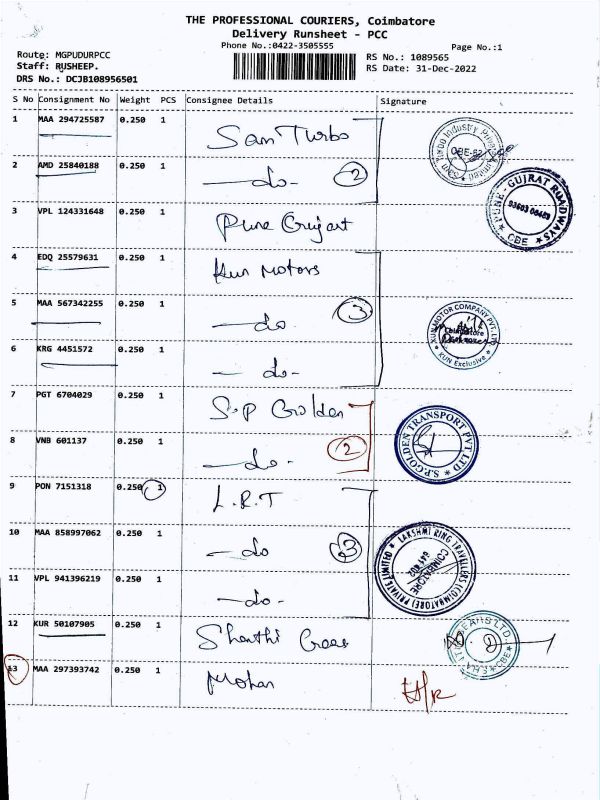 THE PROFESSIONAL COURIERS, Coimbatore
Delivery Runsheet - PCC
Phone No.:0422-3505555
Page No.:1
Route: MGPUDURPCC
RS No.: 1089565
Staff: RUSHEEP.
RS Date: 31-Dec-2022
DRS No.: DCJB108956501
S No Consignment No Weight PCS Consignee Details Signature
1 MAA 294725587 0.250 1 Sam Turbo
2 AMD 25840188 0.250 1 -do- 2
3 VPL 124331648 0.250 1 Pune Gujart
4 EDQ 25579631 0.250 1 Kun Motors
5 MAA 567342255 0.250 1 -do 3
6 KRG 4451572 0.250 1 - do-
7 PGT 6704029 0.250 1 S.P Golden
8 VNB 601137 0.250 1 -do- 2
9 PON 7151318 0.250 1 L.R.T
10 MAA 858997062 0.250 1 -do 3
11 VPL 941396219 0.250 1 -do-
12 KUR 50107905 0.250 1 Shanthi Gears
13 MAA 297393742 0.250 1 Mohan
Sam Turbo Industry Private Limited
CBE-62
PUNE - GUJRAT ROADWAYS
CBE
KUN MOTOR COMPANY PVT. LTD
Coimbatore
KUN Exclusive
S.P.GOLDEN TRANSPORT PVT LTD
LAKSHMI RING TRAVELLERS (COIMBATORE) PRIVATE LIMITED
COIMBATORE
641 402
CBE